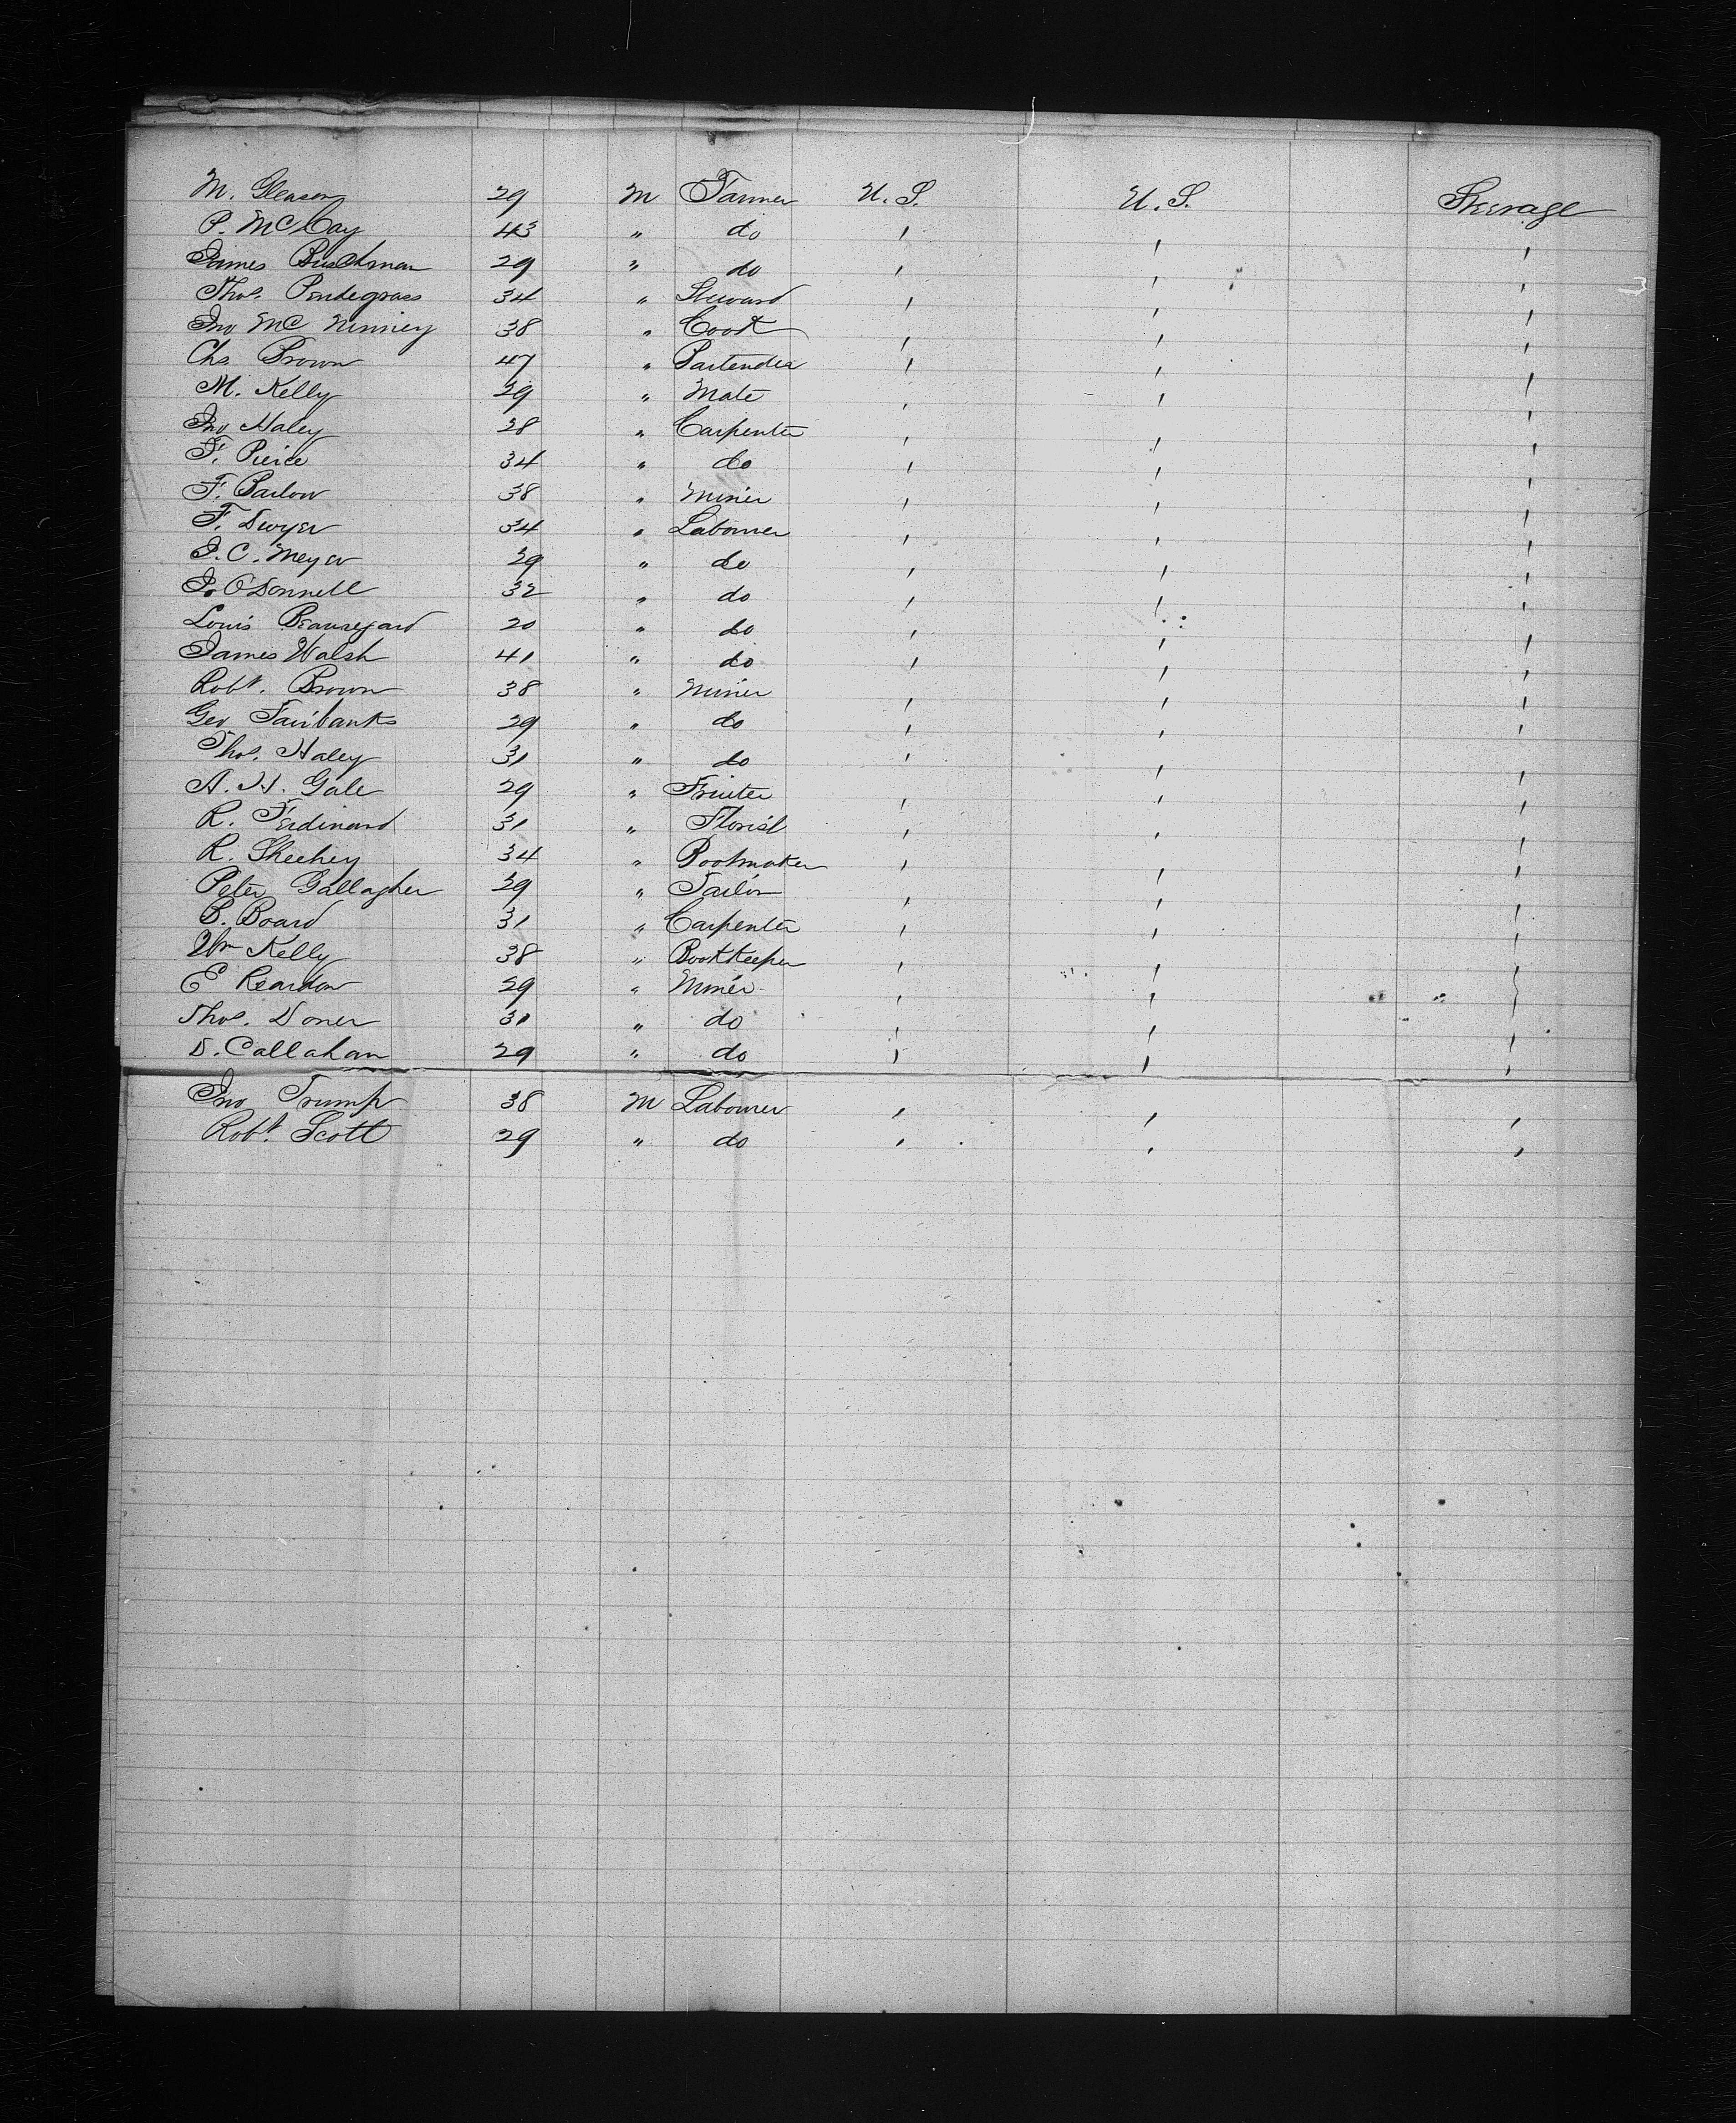 M. Gleason 29 M Farmer U.S. U.S. Steerage
P. McCoy 43 " do " " "
James Buschman 29 " do " " "
Thos. Pendegrass 34 " Steward " " "
Jno Mc 38 " Cook " " "
Chs. Brown 47 " Bartender " " "
M. Kelly 29 " Mate " " "
Jno Haley 28 " Carpenter " " "
F. Pierce 34 " do " " "
F. Barlow 38 " Miner " " "
F. Dwyer 34 " Labourer " " "
J. C. Meyer 29 " do " " "
J. O'Donnell 32 " do " " "
Louis Beauregard 20 " do " " "
James Walsh 41 " do " " "
Robt. Brown 38 " Miner " " "
Geo Fairbanks 29 " do " " "
Thos. Haley 31 " do " " "
A. H. Gale 29 " " " "
R. Ferdinand 31 " Florist " " "
R. Sheehey 34 " Bootmaker " " "
Peter Gallagher 29 " Tailor " " "
B. Board 31 " Carpenter " " "
Wm Kelly 38 " Bookkeeper " " "
E Reardon 29 " Miner " " "
Thos. Doner 31 " do " " "
D. Callahan 29 " do " " "
Jno Trump 38 M Labourer " " "
Robt. Scott 29 " do " " "